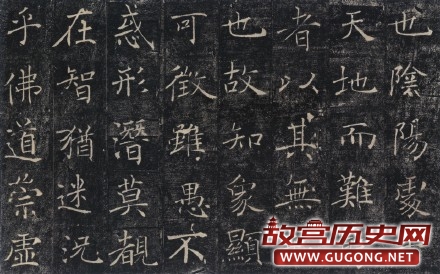 也陰陽處
天地而難
者以其無
也故知象顯
可徵雖愚不
惑形潛莫覩
在智猶迷況
乎佛道崇虛
故宫历史网
WWW.GUGONG.NET